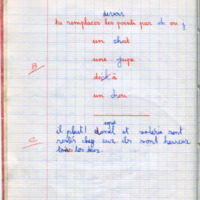 devoir
tu remplaces les points par ch ou j
un chat
une jupe
B
déjà
un chou
copié
C
il pleut! daniel et valérie sont
restés chez eux ils sont heureux
tous les deux.